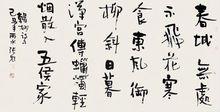 春城無處
不飛花寒
食東風御
柳斜日暮
漢宮傳蠟燭輕
烟散入五侯家
韓翃詩